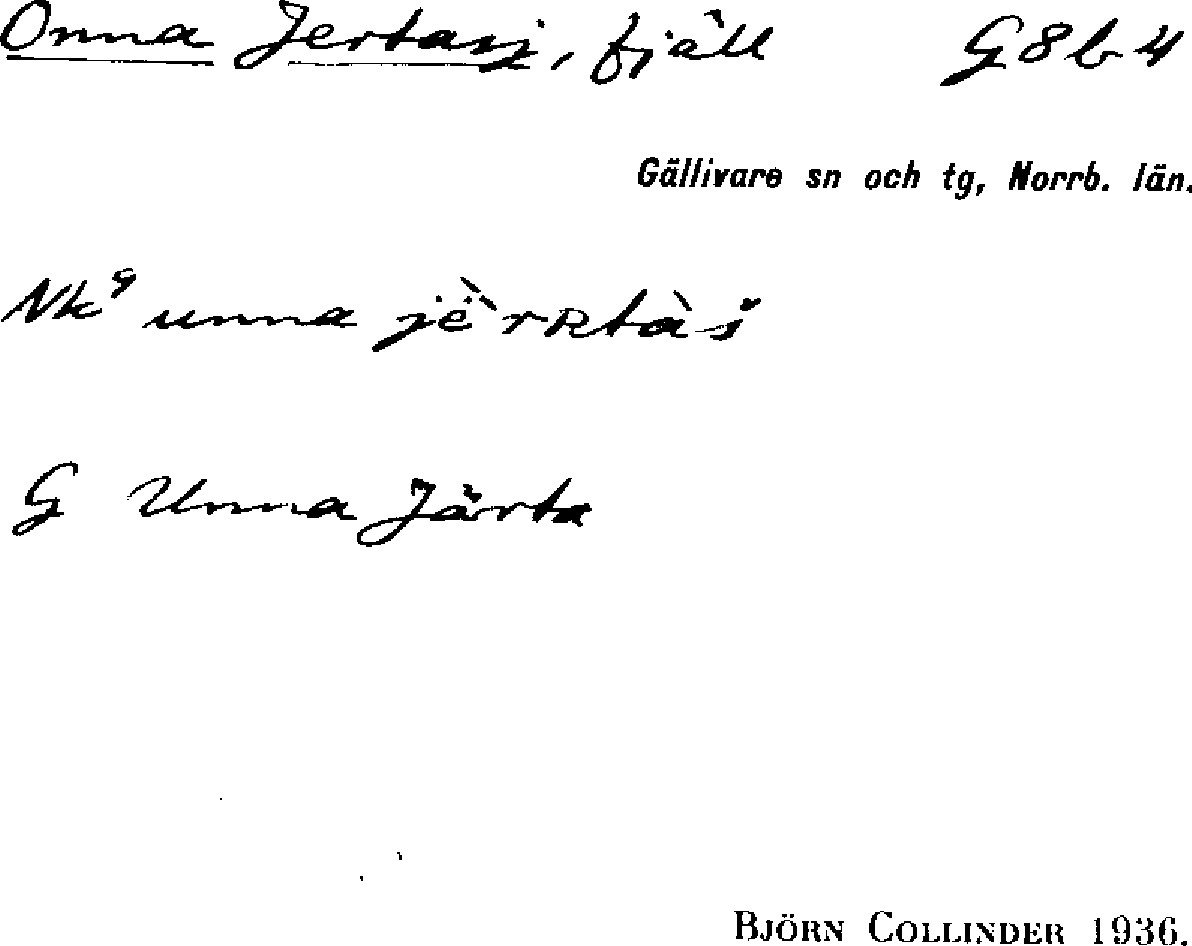 Onna Jertasj, fjäll G8b4
Gällivare sn och tg, Norrb. län.
Nkᵍ unna jë̀rʀtàš
G Unna Järta
BJÖRN COLLINDER 1936.